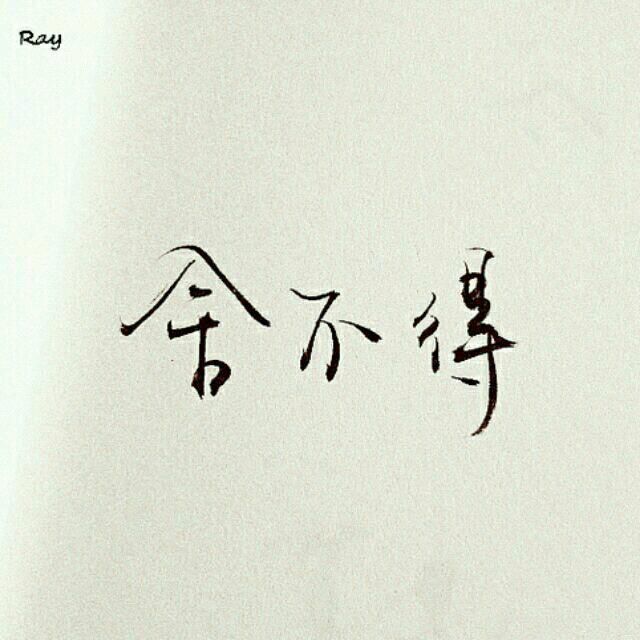 Ray
舍不得